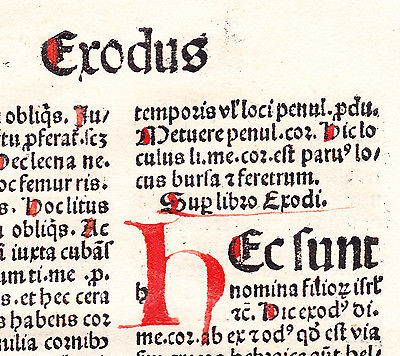 Exodus
obliq̄s. Ju/
tu ꝓferat̄. scꝫ
Hec leena ne.
oc femur ris.
. Hoc litus
obliq̄s. Ac
iuxta cubās̄
um ti. me .p.
s. et hec cera
s habens cor
milia cornibꝰ
temporis vl' loci penul. ꝓdu.
Metuere penul. cor. Hic lo
culus li. me. cor. est paruꝰ lo/
cus bursa ⁊ feretrum.
Suꝑ libro Exodi.
hEc sunt
h nomina filioꝝ isrl'
⁊c̄. Hic exodꝰ di.
me. cor. ab ex ⁊ odꝰ qd̄ est via